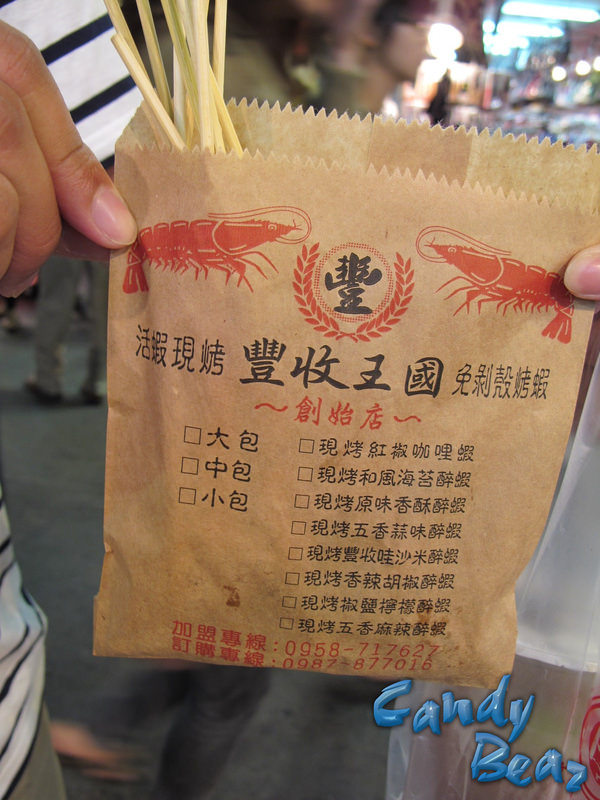 豐
活蝦現烤 豐收王國 免剝殼烤蝦
～創始店～
□大包
□中包
□小包
□現烤紅椒咖哩蝦
□現烤和風海苔醉蝦
□現烤原味香酥醉蝦
□現烤五香蒜味醉蝦
□現烤豐收哇沙米醉蝦
□現烤香辣胡椒醉蝦
□現烤椒鹽檸檬醉蝦
□現烤五香麻辣醉蝦
加盟專線:0958-717627
訂購專線:0987-877016
Candy
Bear